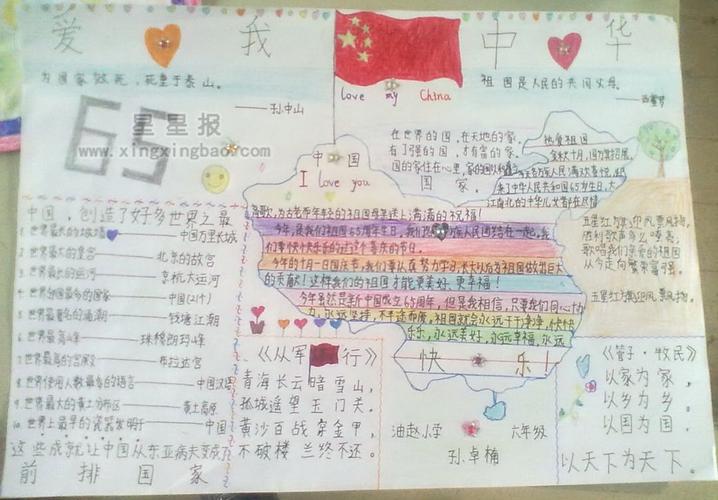 爱 我 中 华
为国家效死，死重于泰山。
——孙中山
love my China
祖国是人民的共同父母。
65
星星报
www.xingxingbao.com
中国
I love you
在世界的国，在天地的家，
有了强的国，才有富的家，
国的家住在心里，家的国以和
国家，
热爱祖国
五星红旗迎风飘扬，
胜利歌声多么嘹亮；
歌唱我们亲爱的祖国
从今走向繁荣富强。
五星红旗迎风飘扬，
中国，创造了好多世界之最
1 世界最大的城墙 中国万里长城
2 世界最大的皇宫——北京的故宫
3 世界最长的运河——京杭大运河
4 世界邻国最多的国家——中国
5 世界最老的海潮——钱塘江潮
6 世界最高峰——珠穆朗玛峰
7 世界最高的宫殿——布拉达宫
8 世界使用人数最多的语言——中国汉语
9 世界最大的黄土分布区——黄土高原
10 世界上最早的瓷器发明于——中国
这些成就让中国从东亚病夫变成
前排国家
高歌，为古老而年轻的祖国母亲送上满满的祝福！
今年，是我们祖国65周年生日，
今年的十月一日国庆节，我们要认真努力学习，长大以后为祖国做出巨大
的贡献！这样我们的祖国才能更美好、更幸福！
今年虽然是新中国成立65周年，但是我相信，只要我们同心协
力，永远坚持，不半途而废，祖国就会永远干干净净，快快
乐乐，永远美好，永远幸福，永远
快 乐！
《从军行》
青海长云暗雪山，
孤城遥望玉门关。
黄沙百战穿金甲，
不破楼兰终不还。
油赵小学 六年级
孙卓楠
《管子·牧民》
以家为家，
以乡为乡。
以国为国，
以天下为天下。